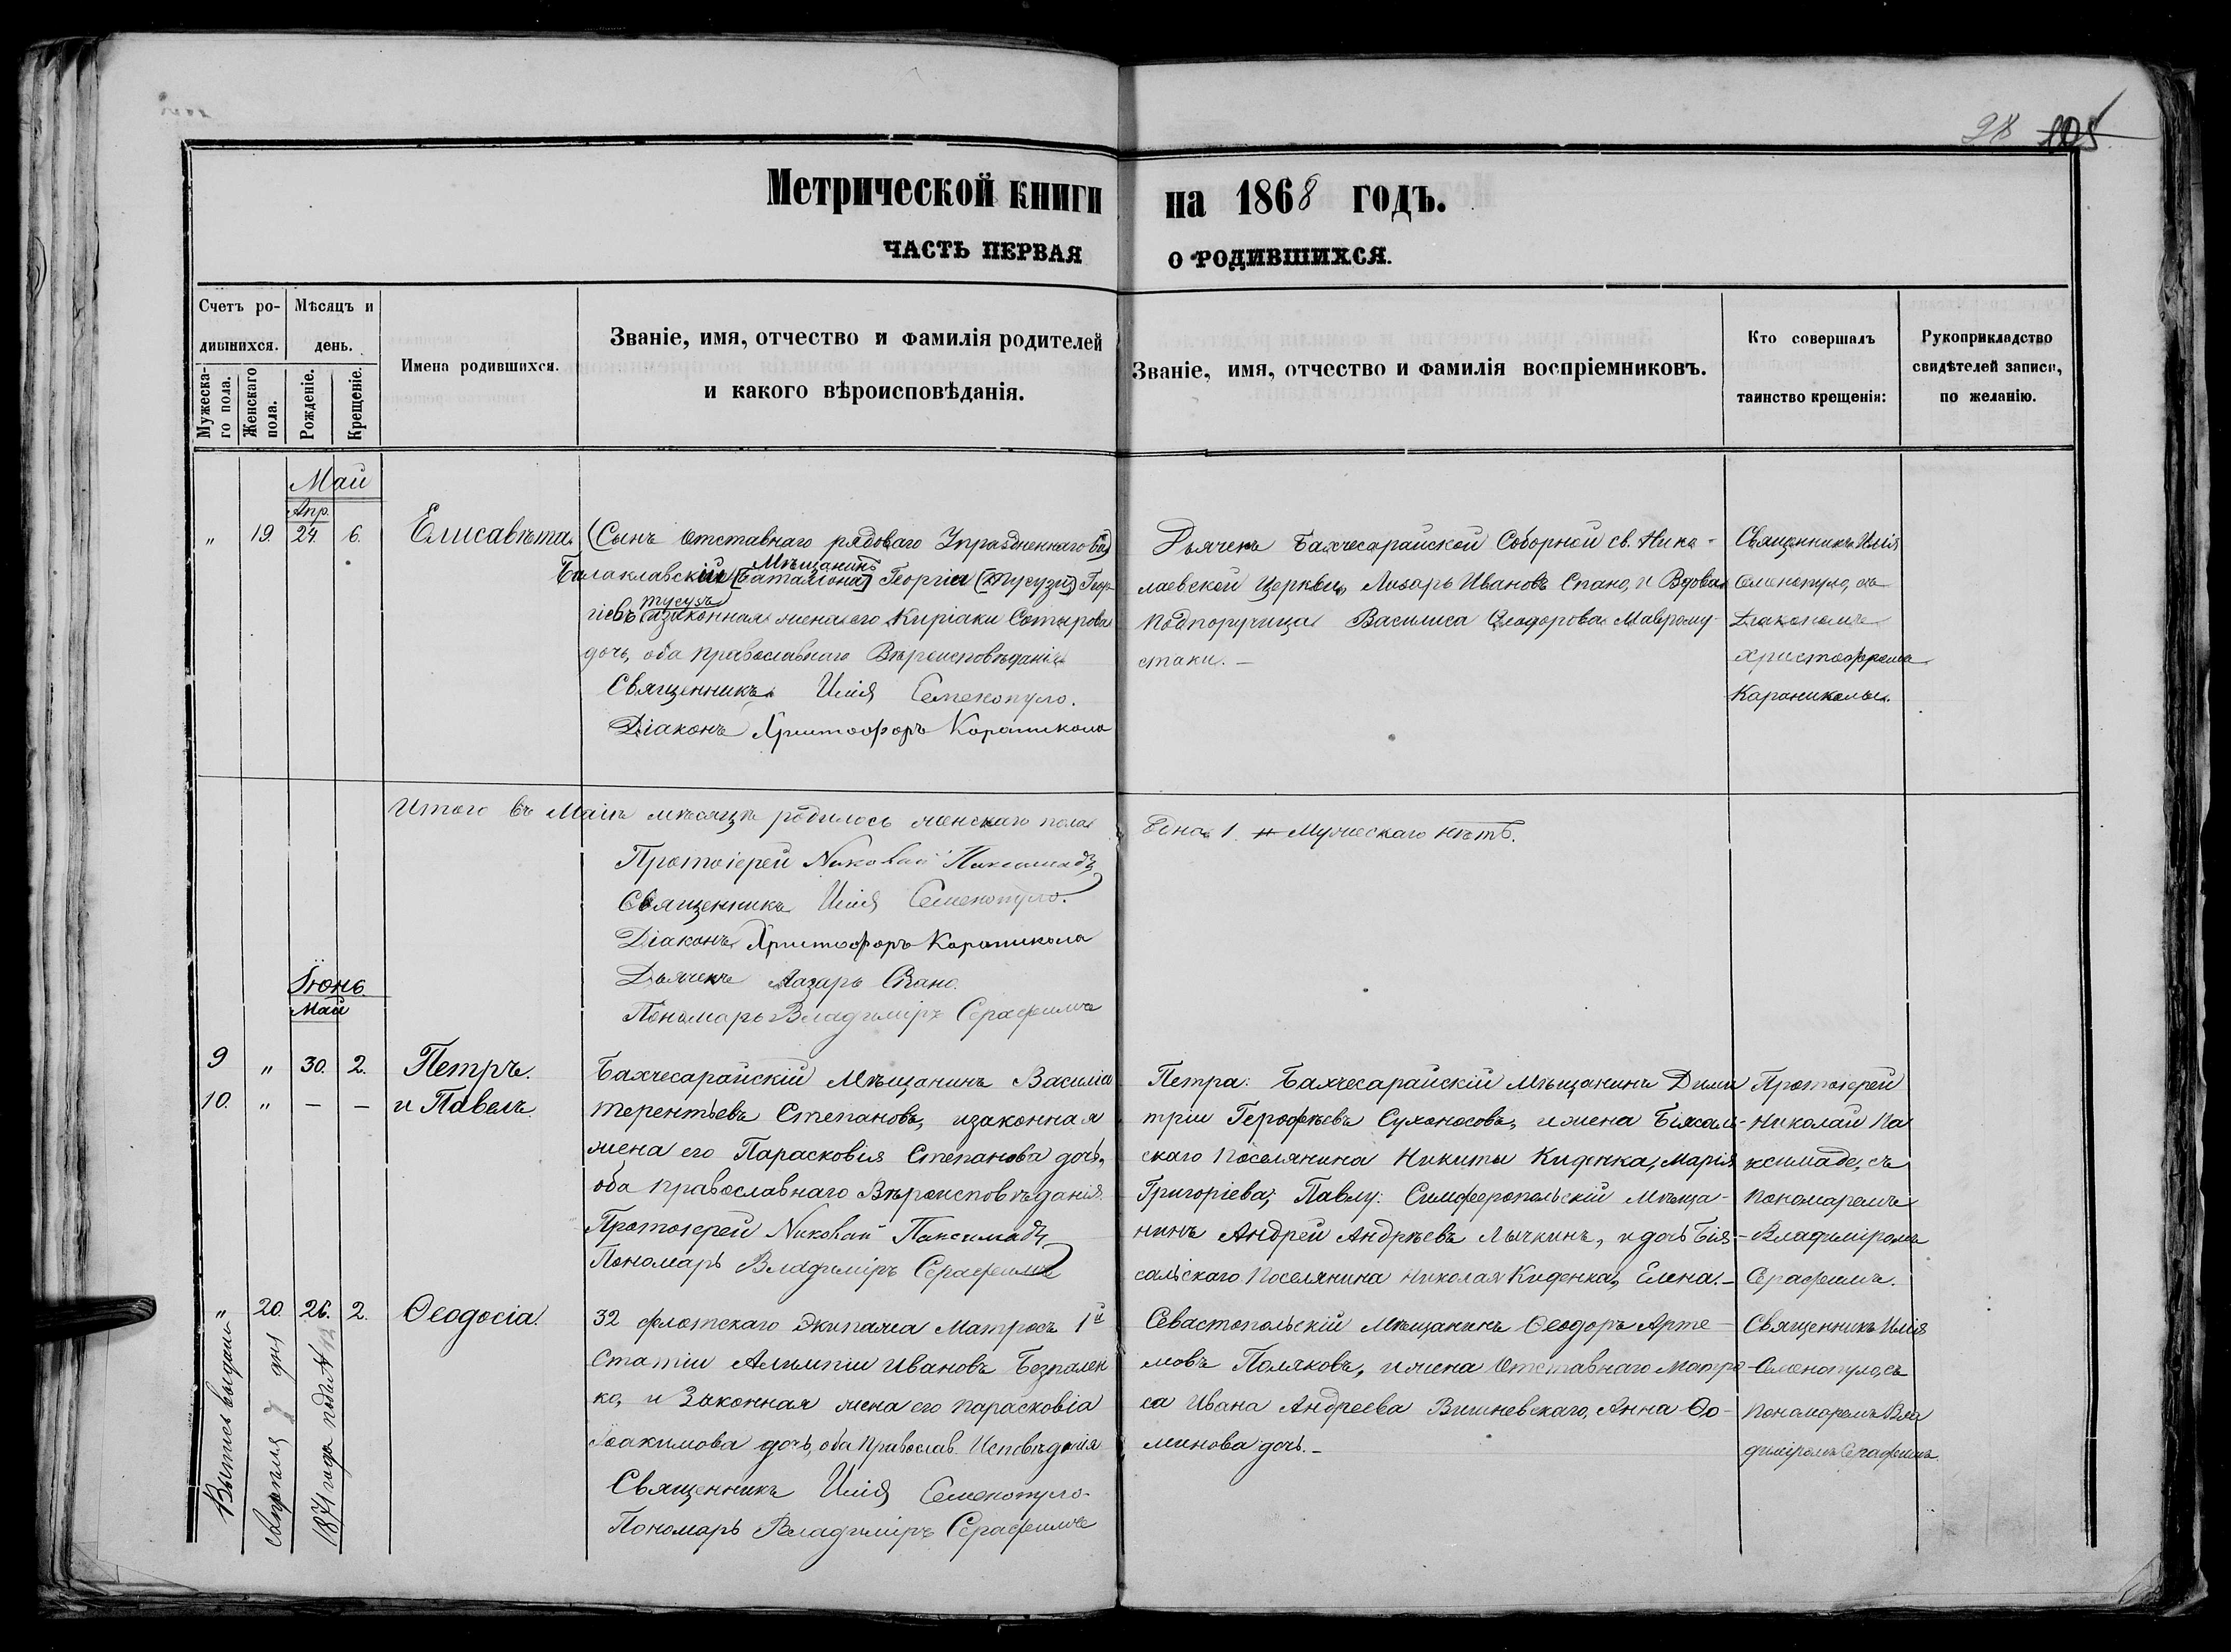 28 105
Метрической книги на 1868 годъ.
ЧАСТЬ ПЕРВАЯ О РОДИВШИХСЯ.
Счетъ ро-
дившихся.
Мужеска-
го пола.
Женскаго
пола.
Мѣсяцъ и
день.
Рожденіе.
Крещеніе.
Имена родившихся.
Званіе, имя, отчество и фамилія родителей
и какого вѣроисповѣданія.
Званіе, имя, отчество и фамилія воспріемниковъ.
Кто совершалъ
таинство крещенія:
Рукоприкладство
свидѣтелей записи,
по желанію.
Май
Апр.
" 19. 24 6. Елисавѣта.
(Сынъ отставнаго рядоваго Упраздненнаго
Мѣщанинъ
Балаклавскій [баталіона] Георгій (Тусузъ) Геор-
Тусузъ
гіевъ изаконная жена его Киріаки Сотырова
дочь, оба православнаго Вѣроисповѣданія
Священникъ Илія Семенопуло.
Діаконъ Христофоръ Караникола
Дьячекъ Бахчесарайской Соборной св. Нико-
лаевской Церкви, Лазарь Ивановъ Спано, и Вдова
Подпоручица Василиса Ѳеодорова Мавроми-
стаки. –
Священникъ Илія
Семенопуло, съ
Діакономъ
Христофоромъ
Караниколы.
Итого въ Маіѣ мѣсяцѣ родилось женскаго пола
1. Мужескаго нѣтъ.
Протоіерей Николай Паксимадъ
Священникъ Илія Семенопуло.
Діаконъ Христофоръ Караникола
Дьячекъ Лазарь Спано.
Пономарь Владиміръ Серафимъ
Іюнь
Май
9 " 30. 2. Петръ.
10. " – – и Павелъ.
Бахчесарайскій Мѣщанинъ Василій
Терентьевъ Степановъ, изаконная
жена его Парасковія Степанова дочь,
оба православнаго Вѣроисповѣданія.
Протоіерей Николай Паксимадъ
Пономарь Владиміръ Серафимъ
Петра: Бахчесарайскій Мѣщанинъ Дими
трій Герофѣевъ Сухоносовъ, ижена Біясаль-
скаго Поселянина Никиты Киденка, Марія
Григоріева; Павлу: Симферопольскій Мѣща-
нинъ Андрей Андрѣевъ Лычкинъ, и дочь Бія-
сальскаго Поселянина Николая Киденка, Елена. –
Протоіерей
Николай Па
ксимаде, съ
пономаремъ
Владиміромъ
Серафимъ.
" 20. 26. 2. Ѳеодосія.
32 флотскаго экипажа Матросъ 1й
Статіи Алимпій Ивановъ Безпален
ко, и Законная жена его Парасковіа
Іоакимова дочь, оба Православ. Исповѣданія
Священникъ Илія Семенопуло
Пономарь Владиміръ Серафимъ
Севастопольскій Мѣщанинъ Ѳеодоръ Арте-
мовъ Поляковъ, ижена Отставнаго Матро-
са Ивана Андреева Вишневскаго, Анна Ѳо-
минова дочь. –
Священникъ Илія
Семенопуло, съ
Пономаремъ Вла
диміромъ Серафимъ.
Выпись выдана
Апрѣля дня
1871 года подъ № 12